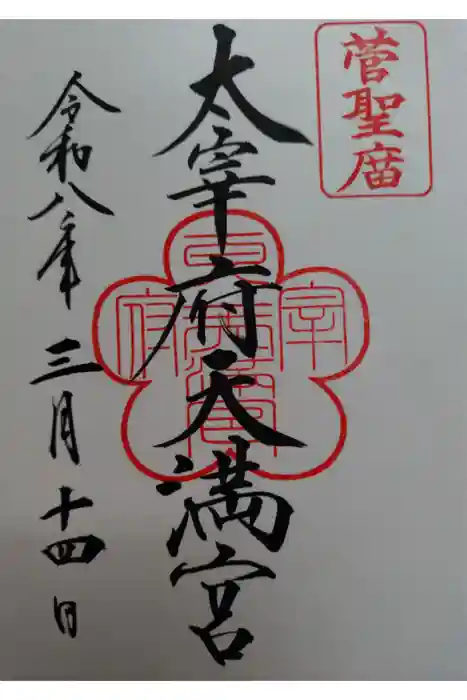 菅聖廟
太宰府天満宮
令和八年三月十四日